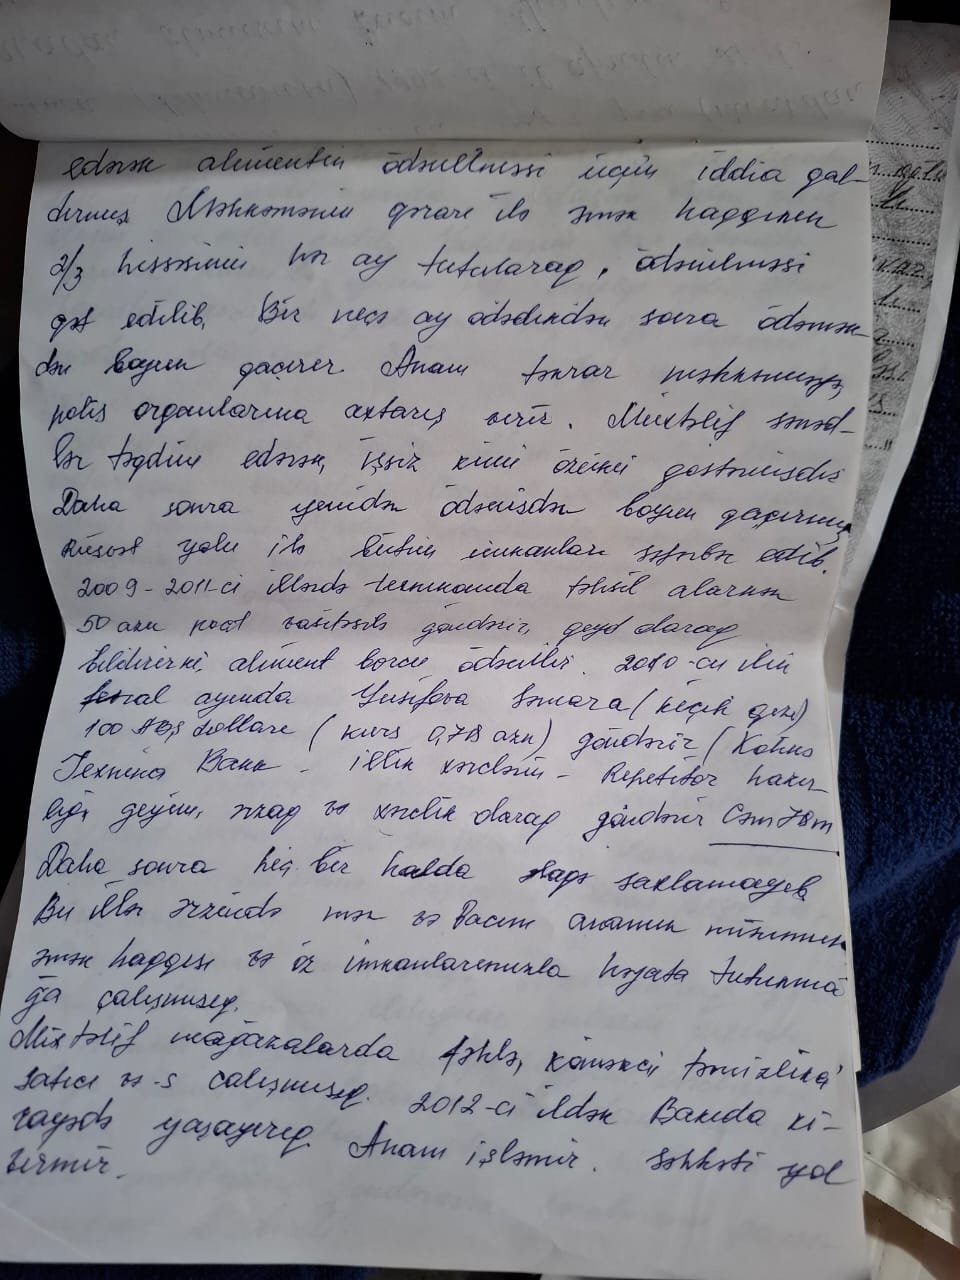 edərək alimentin ödənilməsi üçün iddia qal-
dırmış Məhkəmənin qərarı ilə əmək haqqının
2/3 hissəsinin hər ay tutularaq, ödənilməsi
qət edilib. Bir neçə ay ödədikdən sonra ödəmək-
dən boyun qaçırır. Anam təkrar məhkəməyə,
polis orqanlarına axtarış verir. Müxtəlif sənəd-
lər təqdim edərək, işsiz kimi özünü göstərmişdir
Daha sonra yenidən ödənişdən boyun qaçırmış
Rüşvət yolu ilə bütün imkanları səfərbər edib.
2009-2011-ci illərdə texnikumda təhsil alarkən
50 azn poçt vasitəsilə göndərir, qeyd olaraq
bildirir ki aliment borcu ödənilir. 2010-cu ilin
ayında Yusifova Səmarə (kiçik qızı)
100 ABŞ dolları (kurs 0,78 azn) göndərir (
Texnika Bank - illik xərclərin - Repetitor hazır-
lığı, geyim, ərzaq və xərclik olaraq göndərir Cəm 78m
Daha sonra heç bir halda əlaqə saxlamayıb
Bu illər ərzində mən və bacım anamın minimum
əmək haqqısı və öz imkanlarımızla həyata tutunma
ğa çalışmışıq.
Müxtəlif mağazalarda fəhlə, köməkçi təmizlikçi
satıcı və-s çalışmışıq. 2012-ci ildən Bakıda ki-
rayədə yaşayırıq. Anam işləmir. Səhhəti yol
vermir.